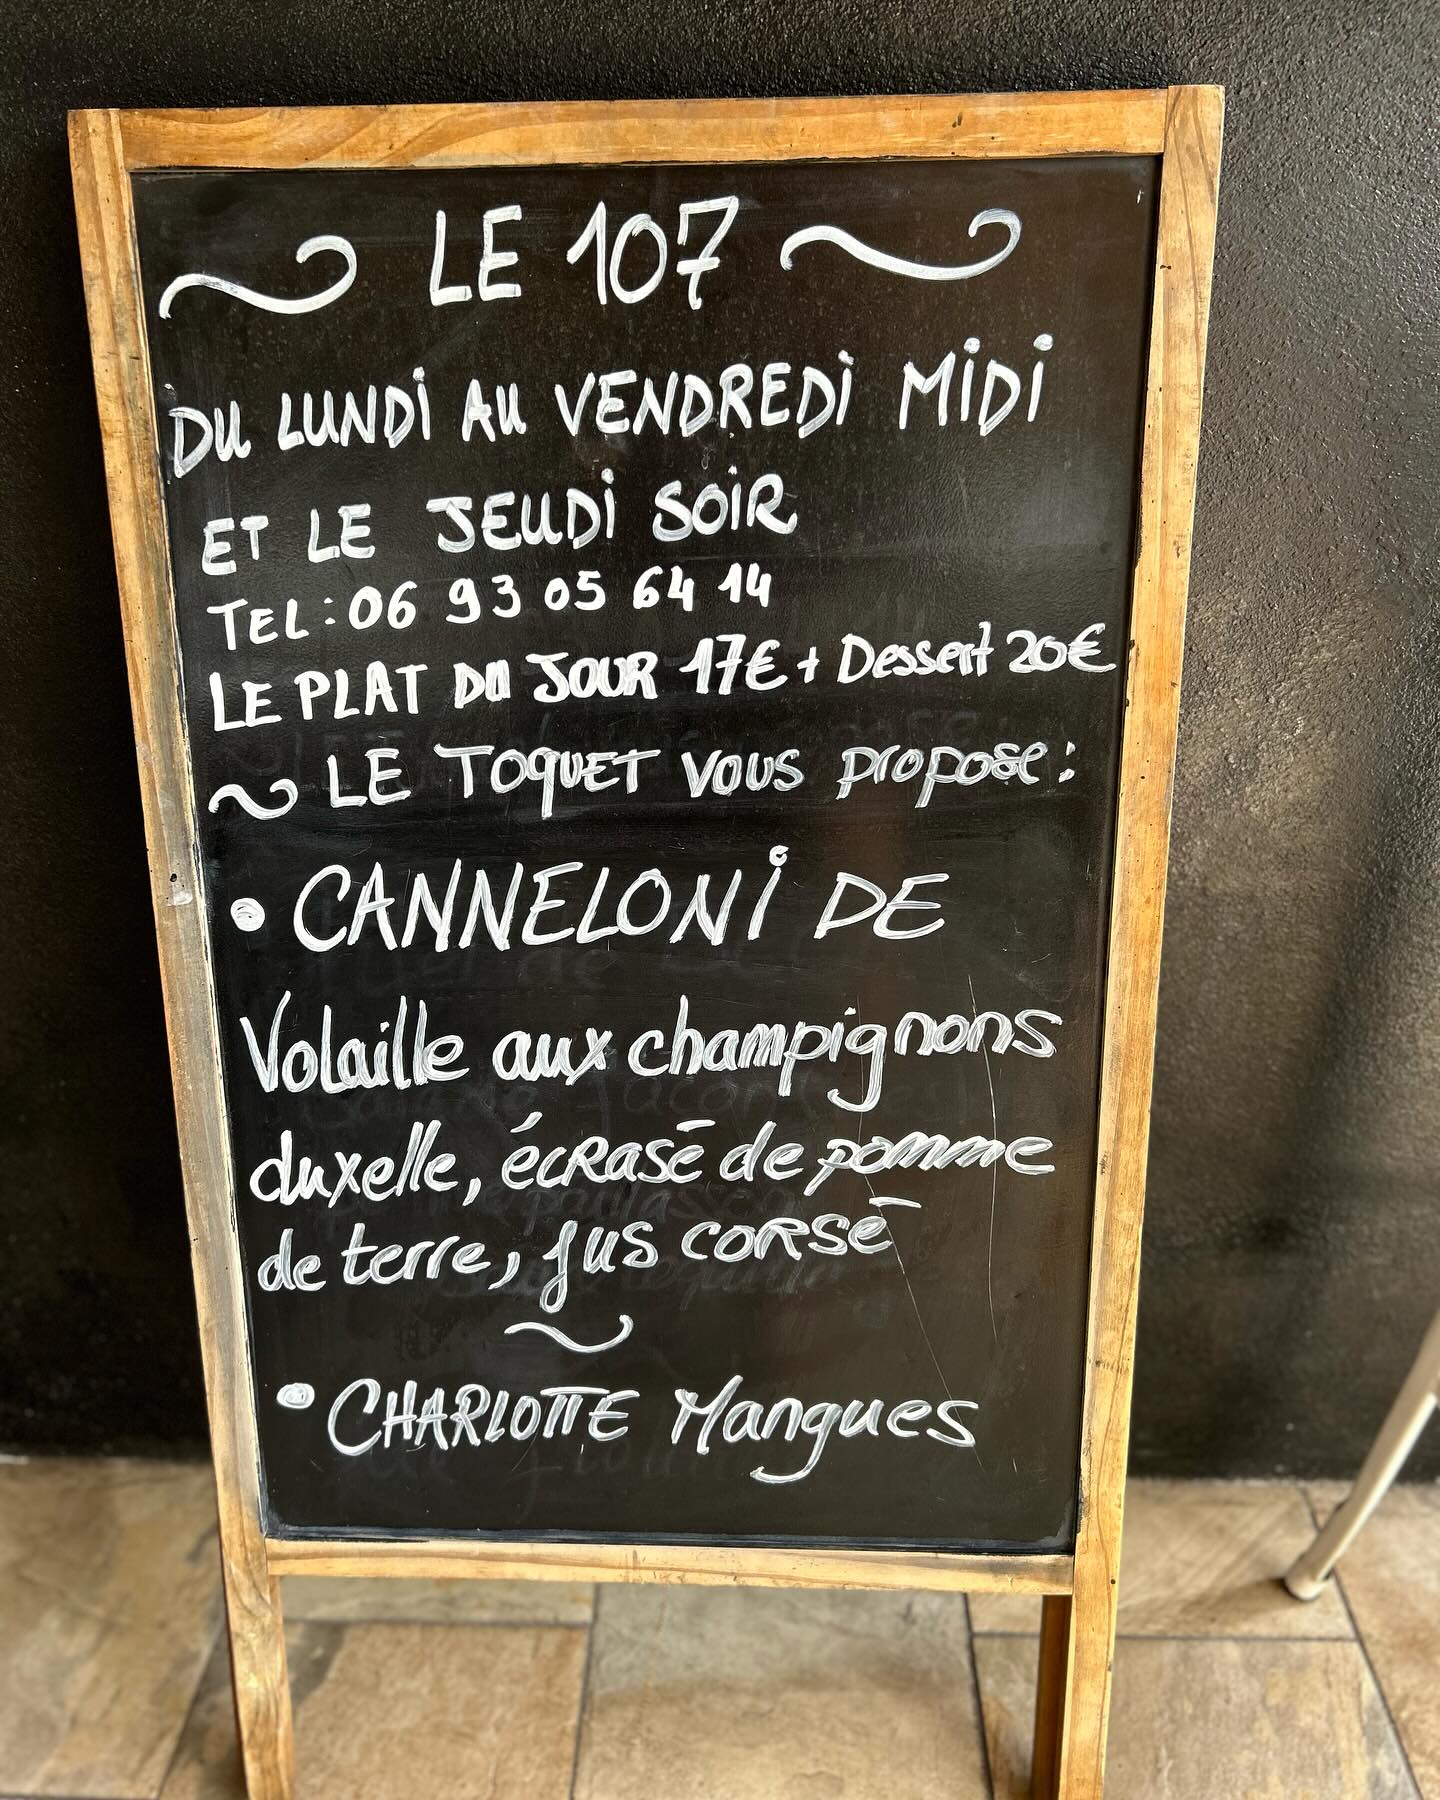 LE 107
DU LUNDI AU VENDREDI MIDI
ET LE JEUDI SOIR
TEL: 06 93 05 64 14
LE PLAT DU JOUR 17€ + Dessert 20€
LE TOQUET VOUS propose:
• CANNELONI DE
Volaille aux champignons
duxelle, écrasé de pomme
de terre, jus corsé
• CHARLOTTE Mangues